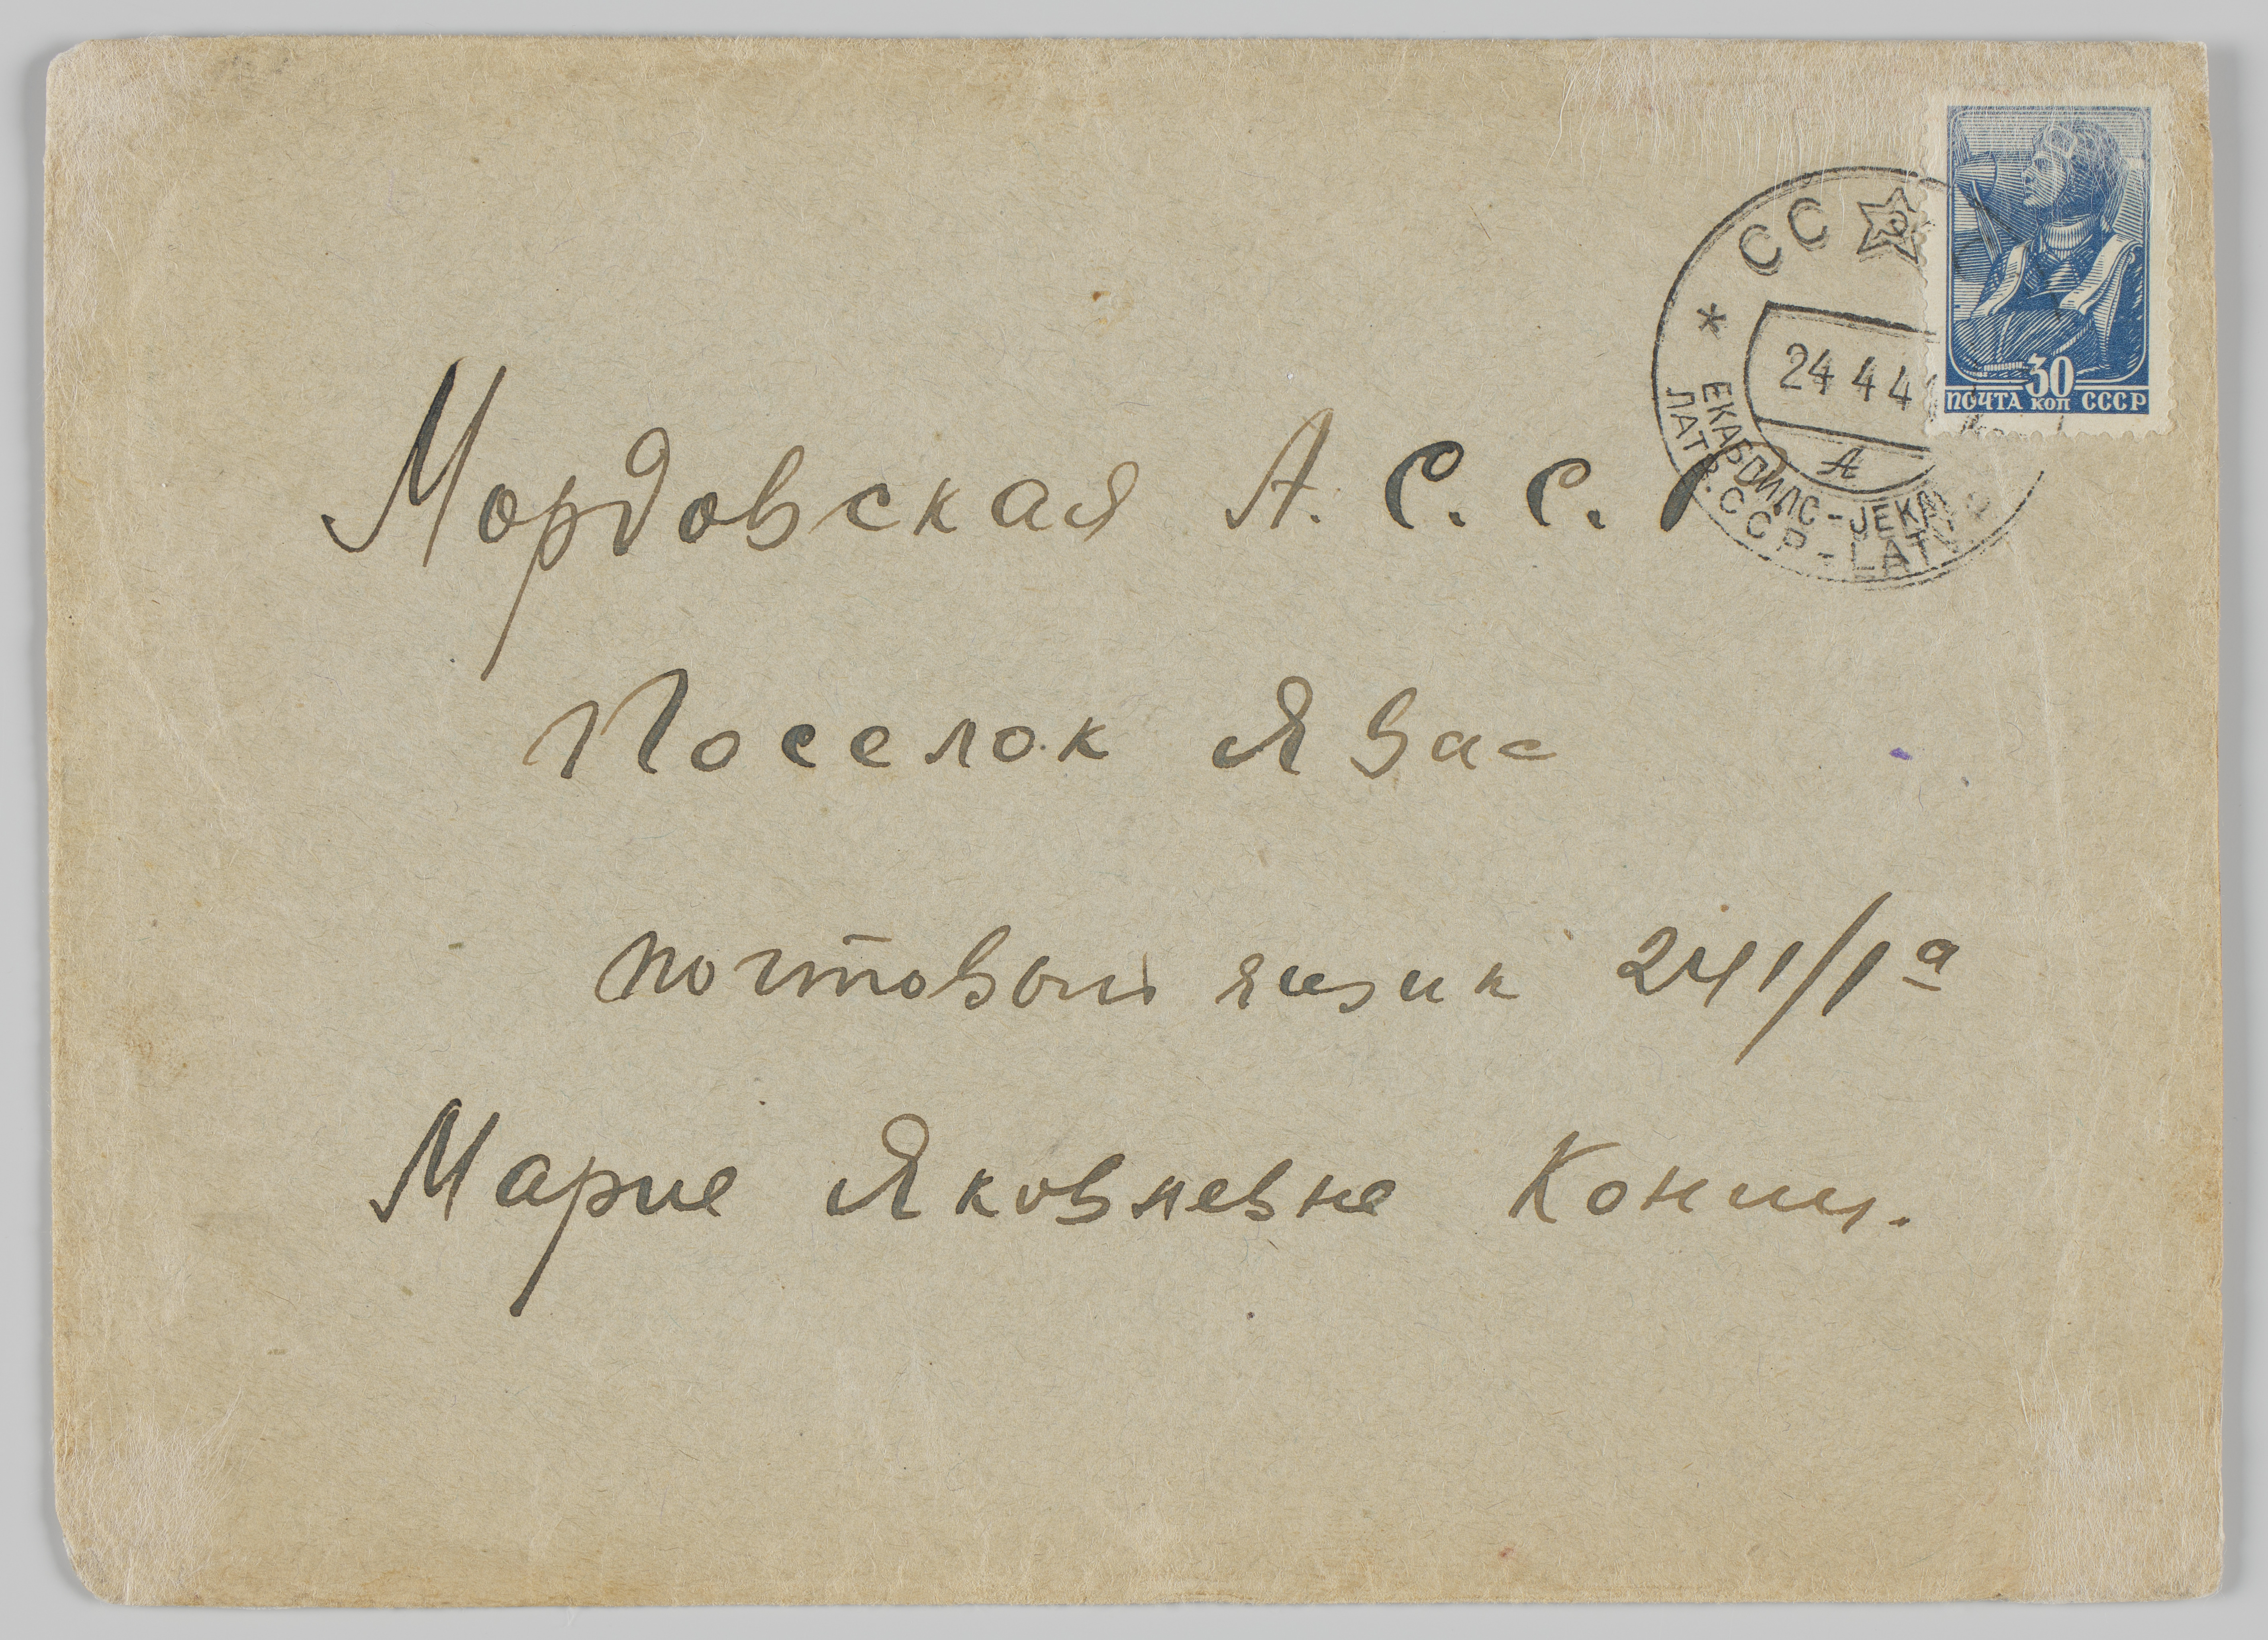 СС
24 4 4
А
ЕКАБПИЛС-JEKA
ЛАТВ.ССР-LAT
30
ПОЧТА КОП СССР
Мордовская А. С. С. Р
Поселок Явас
почтовый ящик 241/1а
Марие Яковлевне Кониц.